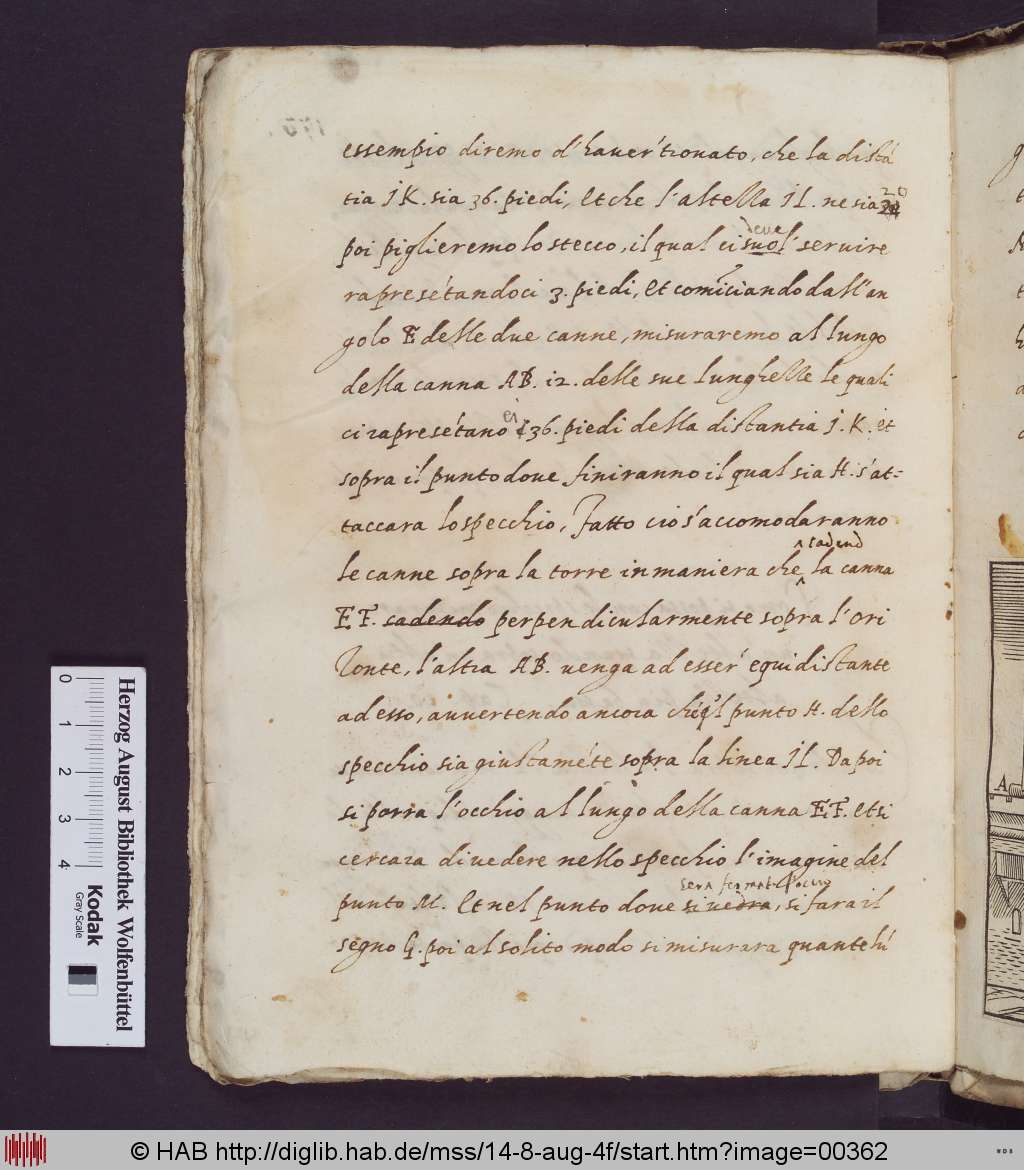 essempio diremo d'hauer' trouato, che la distā
tia IK. sia 36. piedi, et che l'altella IL. ne sia 20
deve
poi piglieremo lo stecco, il qual ci suol' seruire
rapresētandoci 3. piedi, et comīciando dall'an
golo E delle due canne, misuraremo al lungo
della canna AB. 12. delle sue lunghelle le quali
ci rapresētano ei 36. piedi della distantia I.K. et
sopra il punto doue finiranno il qual sia H. s'at-
taccara lo specchio, fatto cio s'accomodaranno
cadend
le canne sopra la torre in maniera che la canna
EF. cadendo perpendicularmente sopra l'ori
zonte, l'altra AB. uenga ad esser' equidistante
ad esso, auuertendo ancora che'l punto H. dello
specchio sia giustamēte sopra la linea IL. Da poi
si porra l'occhio al lungo della canna EF. et si
cercara di uedere nello specchio l'imagine del
sera l'occhio
punto M. et nel punto doue si uedra, si fara il
segno G. poi al solito modo si misurara quante lū
0
1
2
3
4
Herzog August Bibliothek Wolfenbüttel
Kodak
Gray Scale
A
© HAB http://diglib.hab.de/mss/14-8-aug-4f/start.htm?image=00362